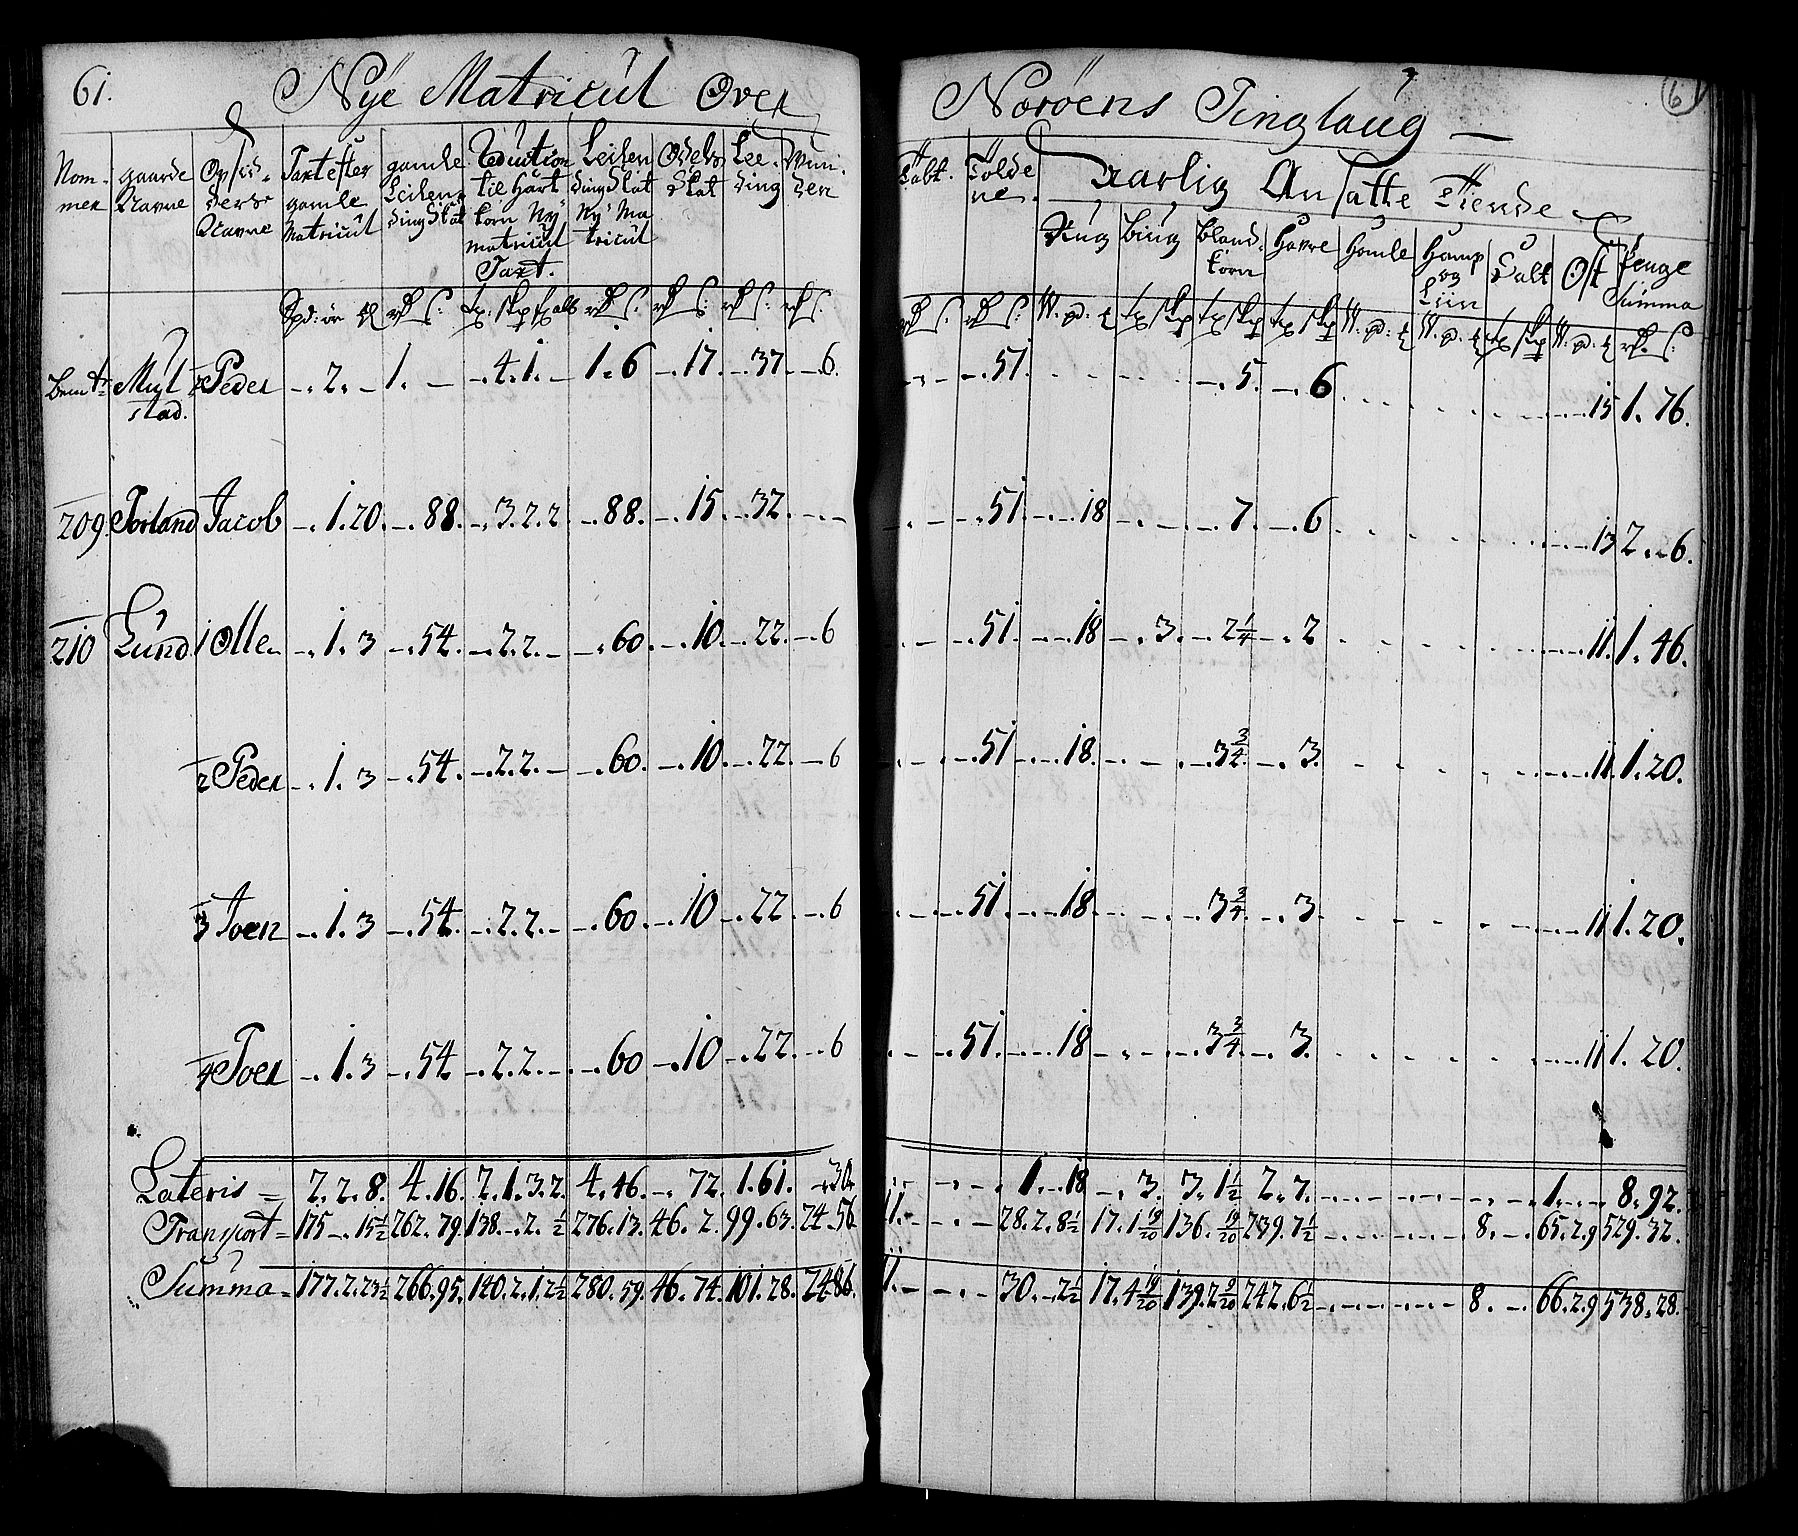 61. Nÿe Matricul Over Noröens Tinglaug
Nom-
mer
gaarde
Navne
Opsid-
ders
Navne
Taxt efter
gamle
Matricul
gamle
Leilen-
dingskat
Reduction
til hart
korn Nÿ
matricul
Taxt.
Leilen
dingskat
Nÿ Ma
tricul
Odels
Skat
Lee-
ding
Tolde
ne
Aarlig Ansatte Tiende
Rug
biug
bland-
korn
Havre
Homle
Hamp
og
Liin
Salt
Ost
Penge
Summa
Myl Peder 2. 1. 4. 1. 1. 6 17. 37. 6. 51. 5. 6 15 1. 76.
stad.
209 Torland Jacob 1. 20. 88. 3. 2. 2 88. 15. 32. 51. 18 7. 6 13 2. 6.
210 Lund 1 Olle 1. 3 54. 2. 2. 60. 10. 22. 6 51. 18 3. 2 1/4 2 11. 1. 46.
2 Peder 1. 3 54. 2. 2. 60. 10. 22. 6 51 18. 3 3/4 3. 11 1. 20.
3 Joen 1. 3 54. 2. 2. 60. 10 22 6 51. 18. 3 3/4 3. 11 1. 20.
4 Joen 1. 3 54 2. 2. 60 10 22. 6 51. 18 3 3/4 3. 11 1. 20.
Lateris 7. 2. 8. 4. 16. 2. 1. 3. 2. 4. 46. 72. 1. 61. 30. 1. 18 3. 3. 1 1/2 2. 7. 1. 8. 92.
Transport 175 15 1/2 262. 79. 138. 2. 1/2 276. 13. 46. 2. 99. 63. 24. 56 28. 2. 8 1/2 17. 1 19/20 136. 19/20 239. 7 1/2 8. 65. 2. 9 529. 32.
Summa 177. 2. 23 1/2 266. 95. 140. 2. 1. 2 1/2 280. 59. 46. 74. 101. 28. 24. 86. 30. 2 1/2 17. 4 19/20 139. 2 9/20 242. 6 1/2 8. 66. 2. 9 538. 28.